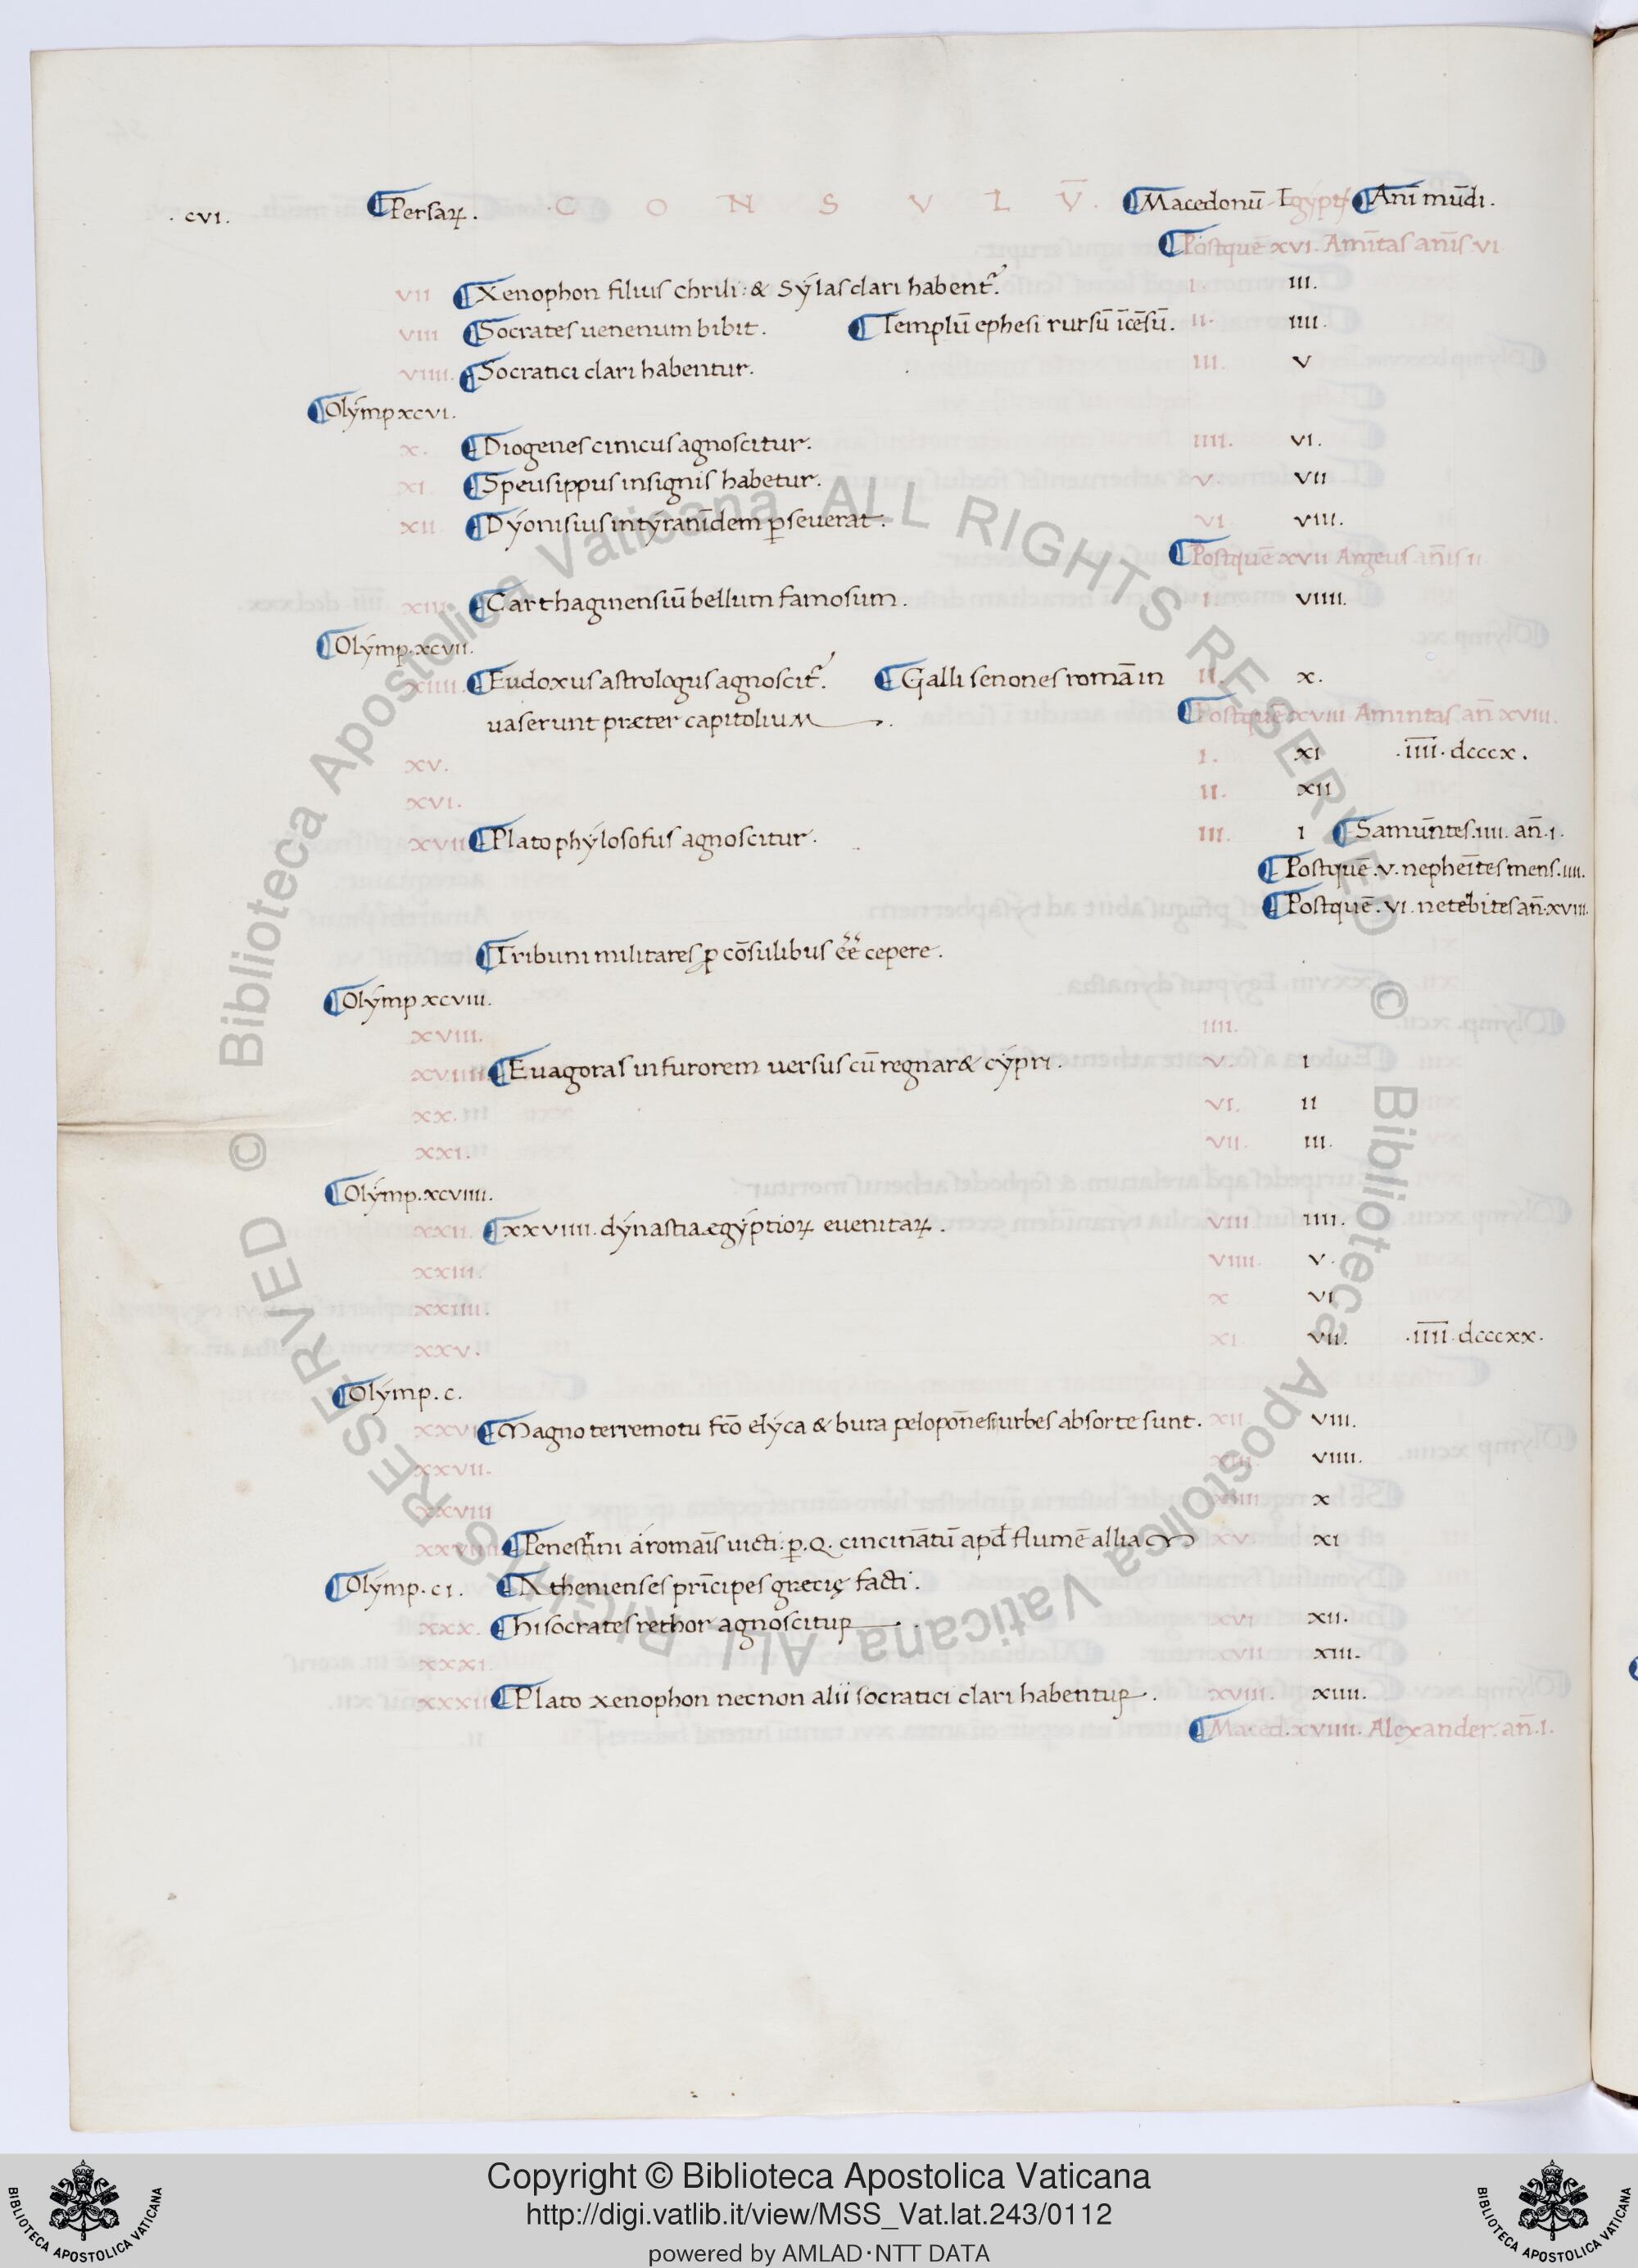 .cvi. Persaꝝ. .C O N S V L V̄. Macedonū Egypti Anī mūdi.
Postquē xvi. Amītas anīs vi
vii Xenophon filius chrili: & Sýlas clari habent᷑. i. iii.
viii Socrates uenenum bibit. Templū ephesi rursū īcēsū. ii. iiii.
viiii. Socratici clari habentur. iii. v
Olýmp xcvi.
x. Diogenes cinicus agnoscitur. iiii. vi.
xi. Speusippus insignis habetur. v. vii
xii. Dýonisius in tyranīdem ꝑseuerat. vi. viii.
Postquē xvii Argeus anīs ii
xiii Carthaginensiū bellum famosum. i viiii.
Olýmp. xcvii.
xiiii. Eudoxus astrologus agnoscit᷑. Galli senones romā in ii. x.
uaserunt præter capitolium.
Postquē xviii Amintas an̄ xviii.
xv. i. xi .iiii̅. dcccx.
xvi. ii. xii
xvii Plato phýlosofus agnoscitur. iii. i Samūtes. iiii. an̄. i.
Postquē. v. nepheītes mens. iiii.
Postquē. vi. netebites an̄. xviii.
Tribuni militares ꝓ cōsulibus ēē cepere.
Olýmp xcviii.
xviii. iiii.
xviiii Euagoras in furorem uersus cū regnar& cýpri. v. i
xx. vi. ii
xxi. vii. iii.
Olýmp. xcviiii.
xxii. xxviiii. dýnastia ægýptioꝝ euenitaꝝ. viii iiii.
xxiii. viiii. v.
xxiiii. x vi
xxv. xi. vii. .iiii̅. dcccxx.
Olýmp. c.
xxvi Magno terremotu fc̄o elýca & bura pelopon̄esi urbes absorte sunt. xii. viii.
xxvii. xiii. viiii.
xxviii xiiii x
xxviiii Penestrini á romaīs uicti: ꝑ. Q. cincinātū apd̄ flumē allia xv xi
Olýmp. ci. Athenienses prīcipes grecię facti.
xxx. Hisocrates rethor agnoscitur. xvi xii.
xxxi. xvii xiii.
xxxii Plato xenophon necnon alii socratici clari habentur. xviii. xiiii.
Maced. xviiii. Alexander. an̄. i.
© Biblioteca Apostolica Vaticana ALL RIGHTS RESERVED
© Biblioteca Apostolica Vaticana ALL RIGHTS RESERVED
BIBLIOTECA APOSTOLICA VATICANA
Copyright © Biblioteca Apostolica Vaticana
http://digi.vatlib.it/view/MSS_Vat.lat.243/0112
powered by AMLAD·NTT DATA
BIBLIOTECA APOSTOLICA VATICANA